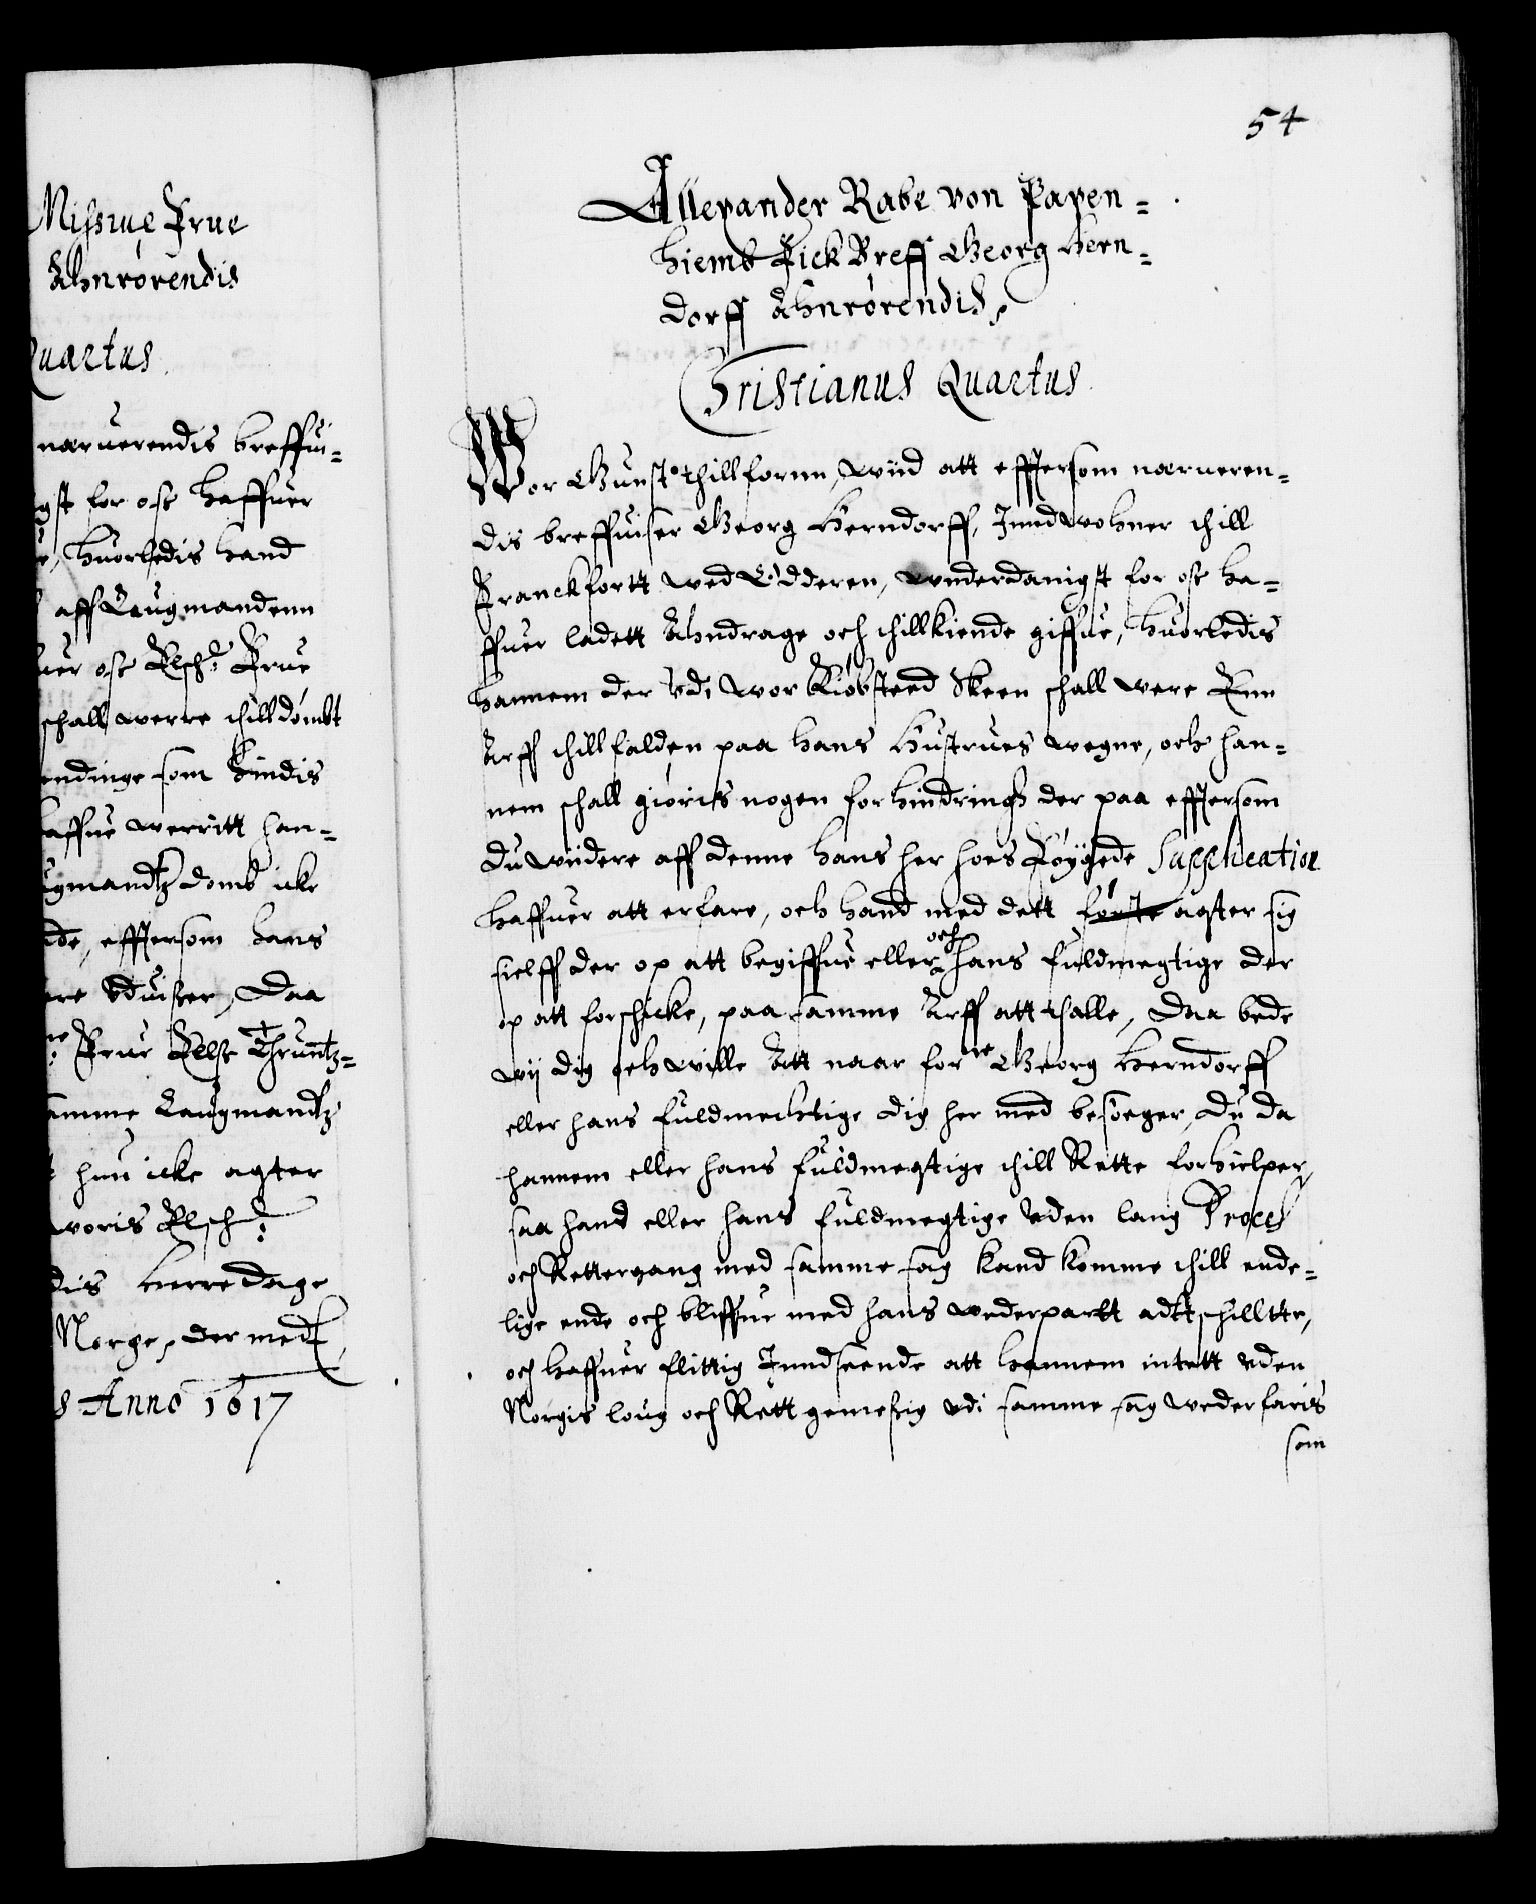 Missiue Frue
Ahnrørendis
Quartus
naruerendis breffui-
gst for oss haffuer
huorledis hand
aff Laugmandenn
uer oss Elsch: Frue
schall werre thilldømbt
endinge som kindis
haffue werritt han-
ugmandtz domb icke
de, effttersom hans
re Vduiser, Daa
ne: Frue Else Thruntz-
samme Laugmandtz
hun icke agter
woris Elsch:
dis herredage
Norge, der medt
s Anno 1617
54
Allexander Rabe von Papen-
hiemb Fick Breff Georg Hern-
dorff Ahnrørendis,
Christianus Quartus
Wor Gunst thillfornn, wiid att effttersom narueren-
dis breffuiser Georg Herndorff, Inndwohner thill
Franckfortt wed Odderen, wnderdanigst for oss ha-
ffuer ladett Ahndrage och thillkiende giffue, huorledis
hannem der Vdi wor Kiøbsteed Skeen schall were Enn
Arff thillfalden paa hans Hustrues wegne, och han-
nem schall giøris nogen forhindring der paa effttersom
du wiidere aff denne hans her hoes Føyede Supplication
haffuer att erfare, och hand med dett første agter sig
sielff der op att begiffue eller och hans fuldmegtige der
op att forschicke, paa samme Arff att thalle, Daa bede
wii dig och wille Att naar forne Georg Herndorff
eller hans fuldmechtige dig her med besøger, du da
hannem eller hans fuldmegtige thill Rette forhielper,
saa hand eller hans fuldmegtige vden lang Process
och Rettergang med samme sag kand komme thill ende-
lige ende och bliffue med hans wederpartt adtschilltte,
och haffuer flittig Inndseende att hannem intett vden
Norgis loug och Rett gemessig vdi samme sag wederfaris
som